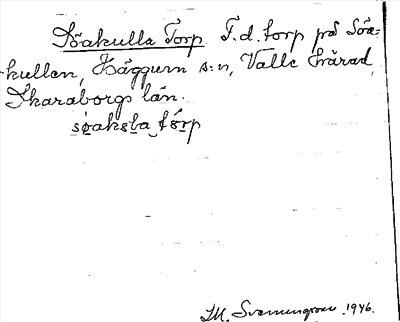 Söakulla Torp F.d. torp på Söa-
kullen, Häggum s:n, Valle härad,
Skaraborgs län.
söaksba tórp
M. 1946.